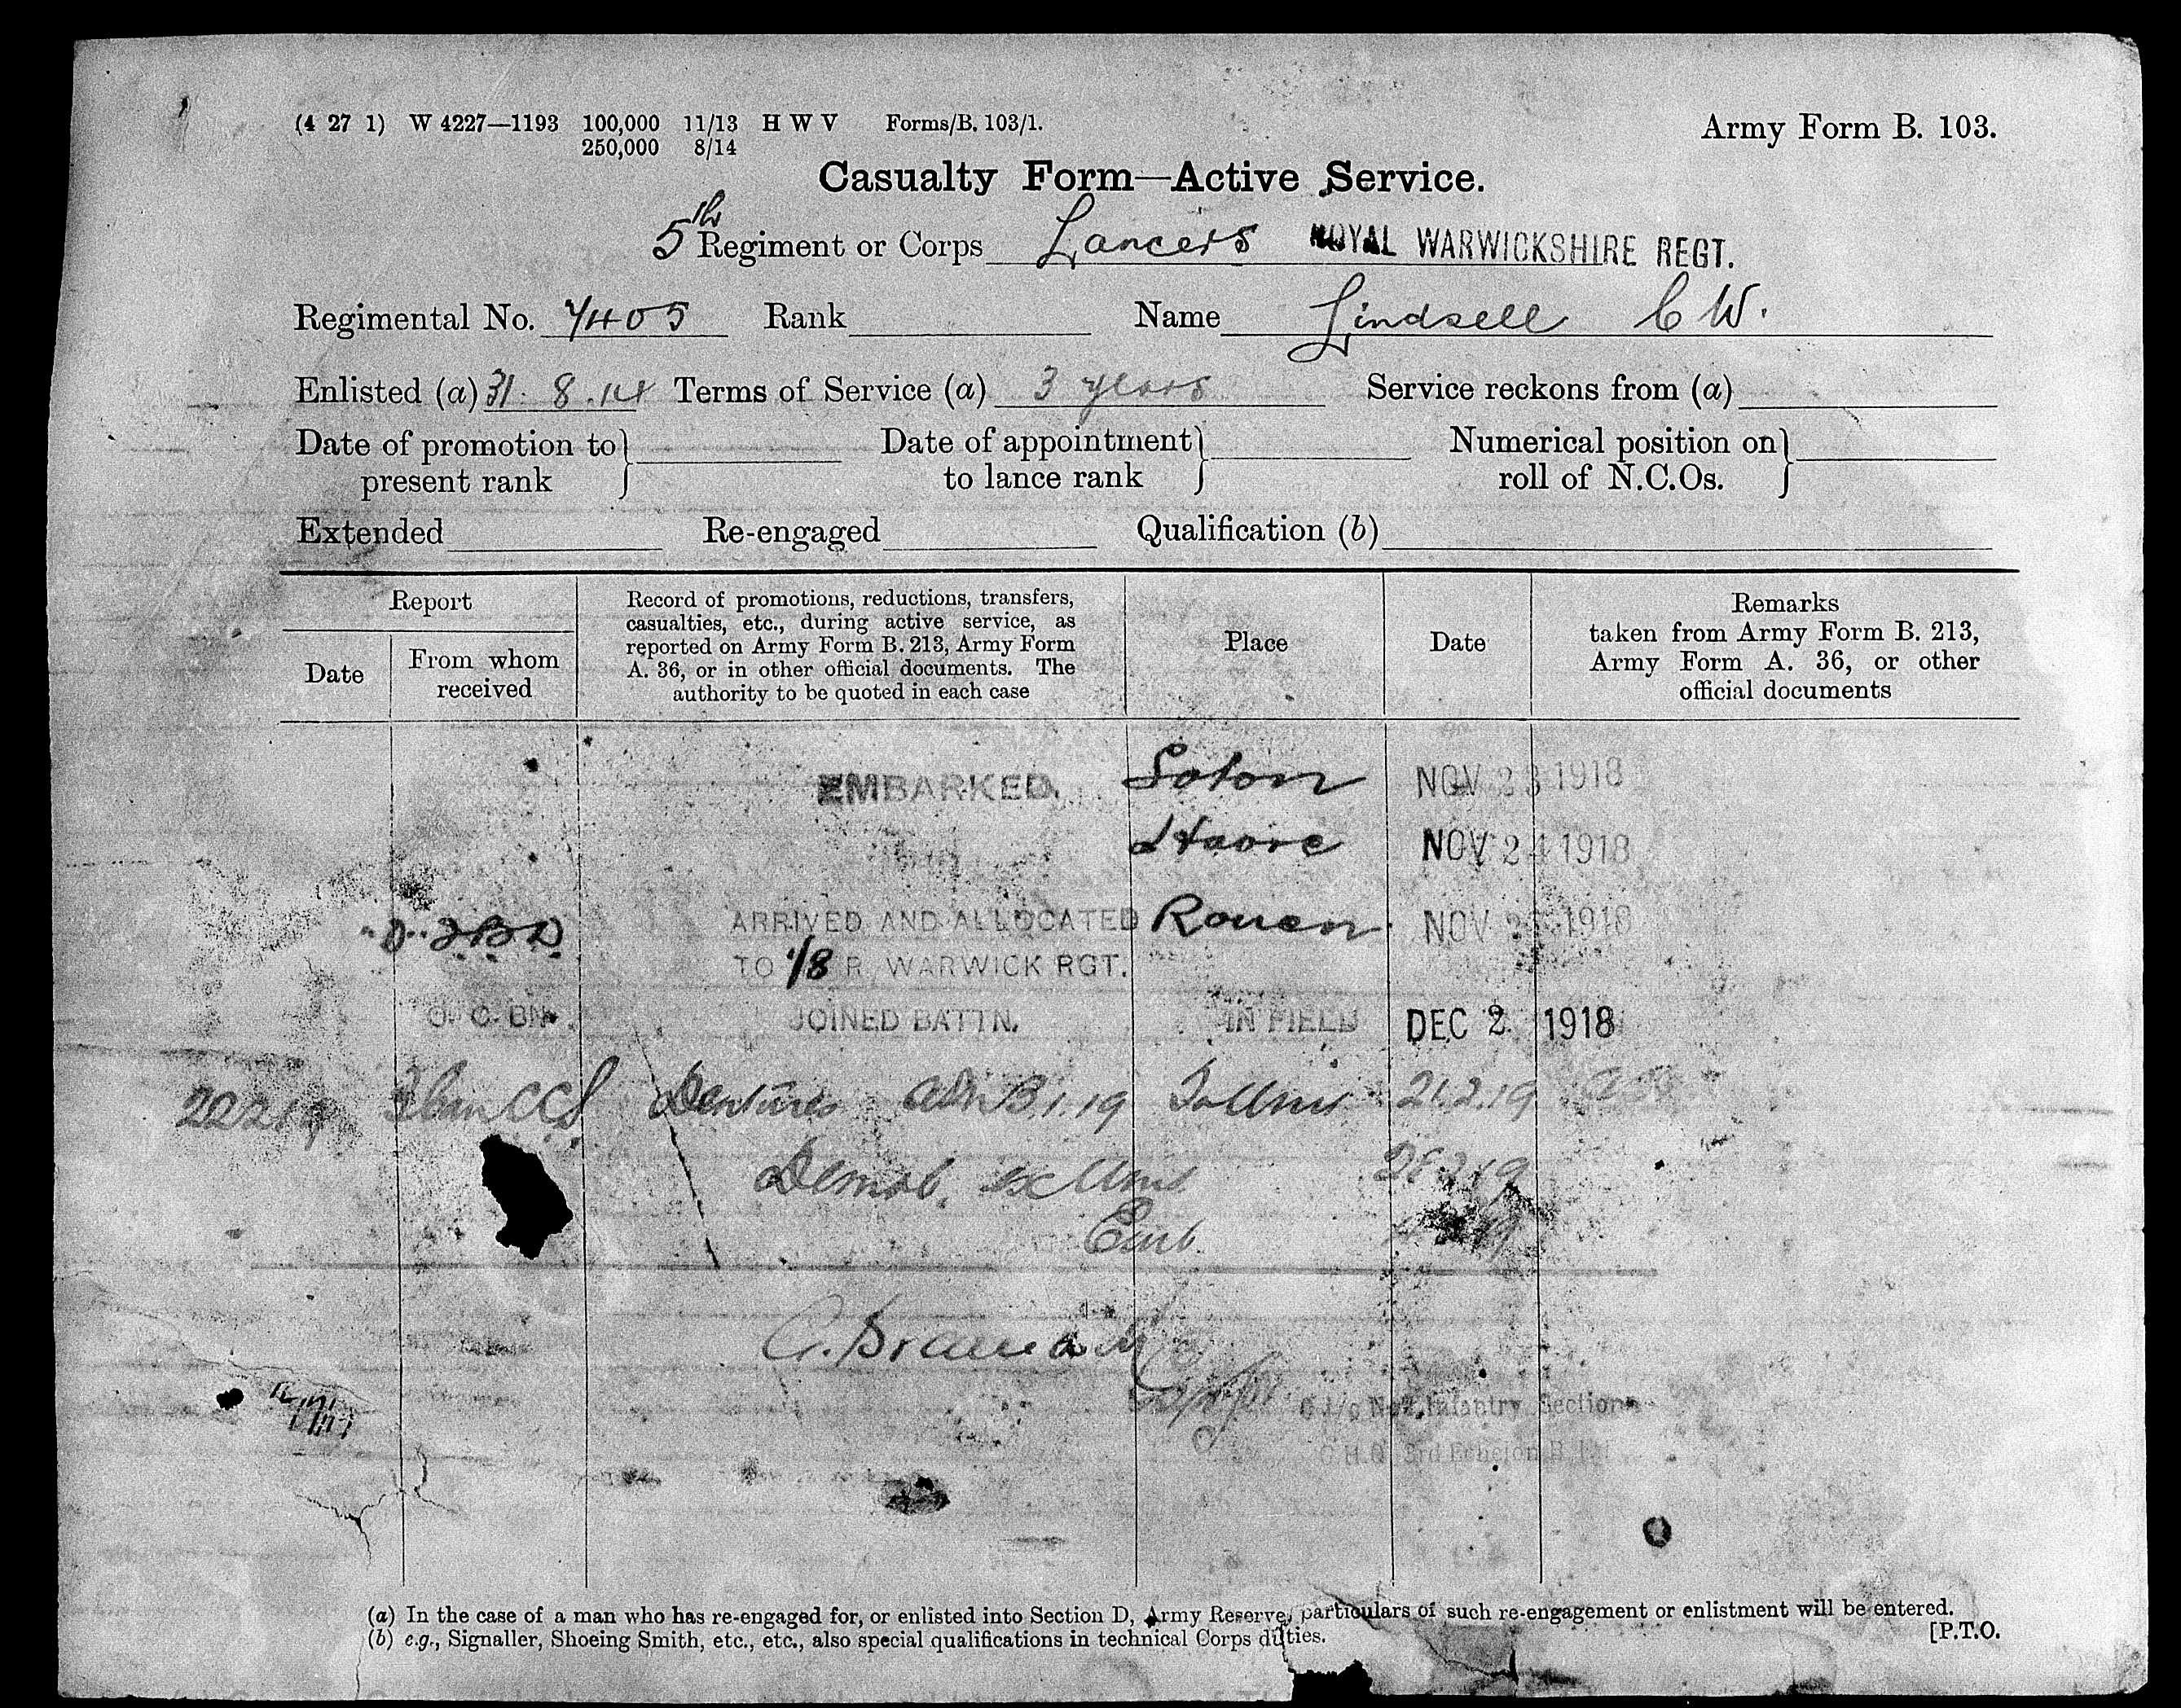 (4 27 1) W 4227—1193 100,000 11/13 H W V Forms/B. 103/1.
250,000 8/14
Army Form B. 103.
Casualty Form—Active Service.
5th Regiment or Corps Lancers ROYAL WARWICKSHIRE REGT.
Regimental No. 7405 Rank Name Lindsell C W.
Enlisted (a) 31.8.14 Terms of Service (a) 3 years Service reckons from (a)
Date of promotion to present rank } Date of appointment to lance rank } Numerical position on roll of N.C.Os. }
Extended Re-engaged Qualification (b)
Report
Date
From whom received
Record of promotions, reductions, transfers,
casualties, etc., during active service, as
reported on Army Form B. 213, Army Form
A. 36, or in other official documents. The
authority to be quoted in each case
Place
Date
Remarks
taken from Army Form B. 213,
Army Form A. 36, or other
official documents
EMBARKED. Soton NOV 23 1918
Havre NOV 24 1918
I.B.D ARRIVED AND ALLOCATED Rouen NOV 1918
TO 1/8 R. WARWICK RGT.
O. C. BN. JOINED BATTN. IN FIELD DEC 2 1918
22 2 19 CCS Dentures 21.2.19
Demob. ex Unit 28 2 19
Emb.
O i/c No Infantry Section
G.H.Q. 3rd Echelon
(a) In the case of a man who has re-engaged for, or enlisted into Section D, Army Reserve, particulars of such re-engagement or enlistment will be entered.
(b) e.g., Signaller, Shoeing Smith, etc., etc., also special qualifications in technical Corps duties.
[P.T.O.